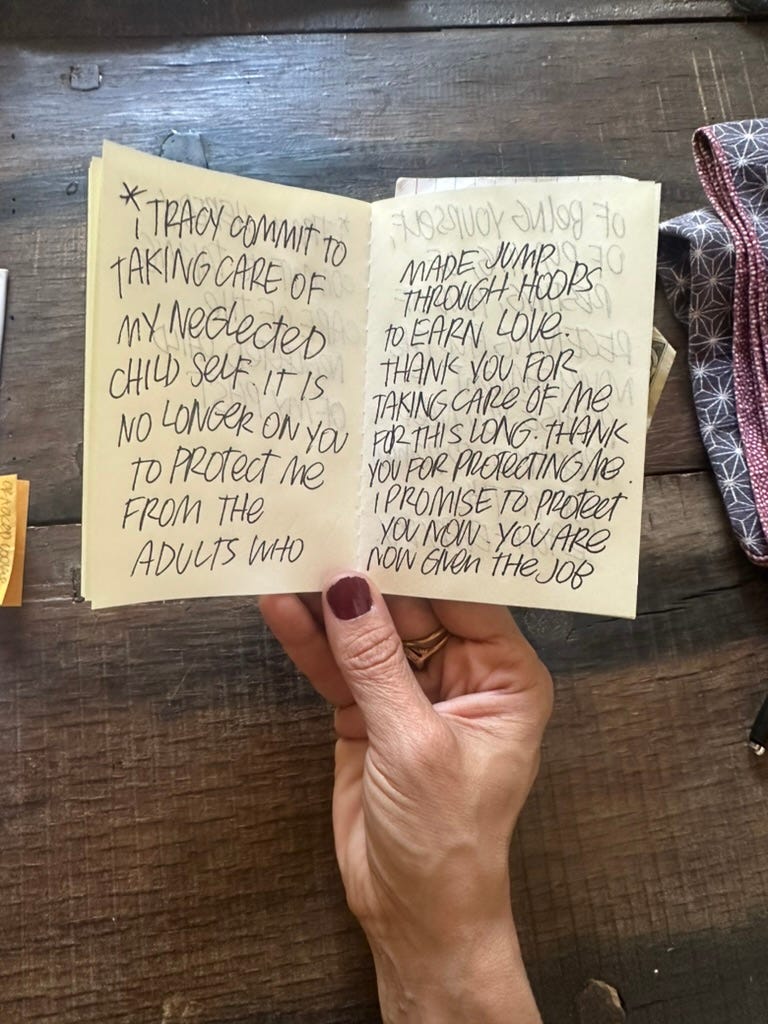 * I TRACY COMMIT TO
TAKING CARE OF
MY NEGLECTED
CHILD SELF. IT IS
NO LONGER ON YOU
TO PROTECT ME
FROM THE
ADULTS WHO
MADE JUMP
THROUGH HOOPS
TO EARN LOVE.
THANK YOU FOR
TAKING CARE OF ME
FOR THIS LONG. THANK
YOU FOR PROTECTING ME.
I PROMISE TO PROTECT
YOU NOW. YOU ARE
NOW GIVEN THE JOB
OF BEING YOURSELF,